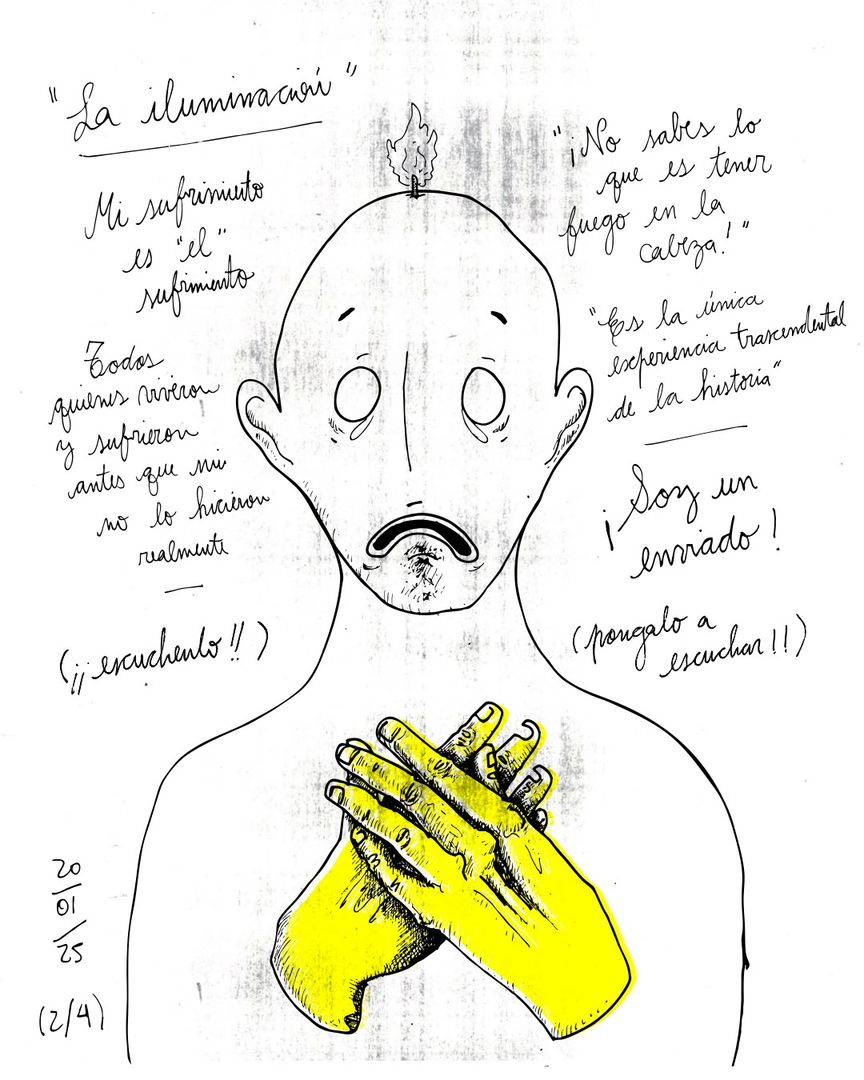 "La iluminación"
Mi sufrimiento
es "el"
sufrimiento
Todos
quienes vivieron
y sufrieron
antes que mi
no lo hicieron
realmente
(¡¡escuchenlo!!)
"¡No sabes lo
que es tener
fuego en la
cabeza!"
"Es la única
experiencia trascendental
de la historia"
¡Soy un
enviado!
(pongalo a
escuchar!!)
20
01
25
(2/4)